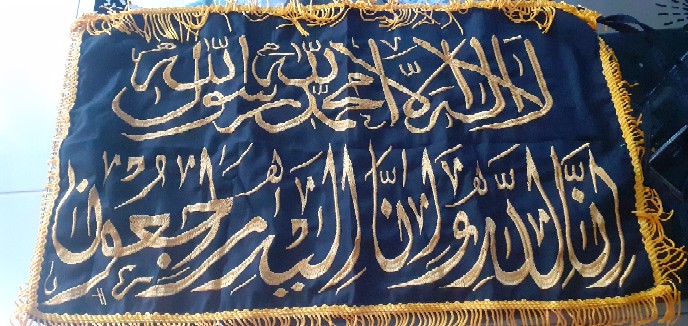 لا إله إلا الله محمد رسول الله
إنا لله وإنا إليه راجعون